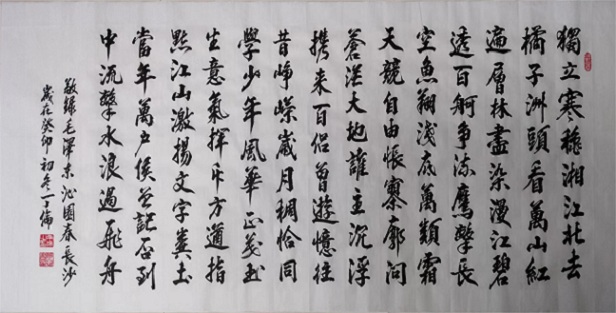 獨立寒秋湘江北去
橘子洲頭看萬山紅
遍層林盡染漫江碧
透百舸爭流鷹擊長
空魚翔淺底萬類霜
天競自由悵寥廓問
蒼茫大地誰主沉浮
携來百侶曾遊憶往
昔崢嶸歲月稠恰同
學少年風華正茂書
生意氣揮斥方遒指
點江山激揚文字糞土
當年萬户侯曾記否到
中流擊水浪遏飛舟
敬録毛澤東沁園春長沙
歲在癸卯初冬丁倫